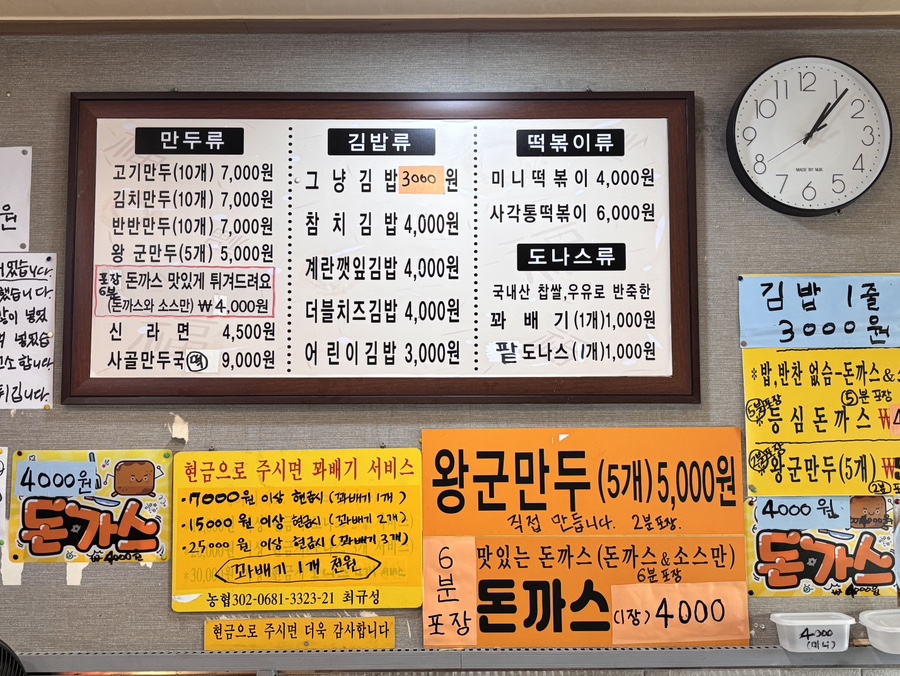 만두류
고기만두(10개) 7,000원
김치만두(10개) 7,000원
반반만두(10개) 7,000원
왕 군만두(5개) 5,000원
포장 6분 돈까스 맛있게 튀겨드려요
(돈까스와 소스만) ₩4,000원
신 라 면 4,500원
사골만두국(떡) 9,000원
김밥류
그 냥 김 밥 3000 원
참 치 김 밥 4,000원
계란깻잎김밥 4,000원
더블치즈김밥 4,000원
어 린 이 김 밥 3,000원
떡볶이류
미 니 떡 볶 이 4,000원
사각통떡볶이 6,000원
도나스류
국내산 찹쌀,우유로 반죽한
꽈 배 기 (1개)1,000원
팥 도나스(1개)1,000원
12
1
2
3
4
5
6
7
8
9
10
11
원
4000원
돈까스
₩4000원
현금으로 주시면 꽈배기 서비스
·7000원 이상 현금시 (꽈배기 1개)
·15000원 이상 현금시 (꽈배기 2개)
·25000원 이상 현금시 (꽈배기 3개)
<꽈배기 1개 천원>
농협302-0681-3323-21 최규성
현금으로 주시면 더욱 감사합니다
왕군만두 (5개) 5,000원
직접 만듭니다. 2분포장.
6분포장
맛있는 돈까스 (돈까스&소스만)
6분포장
돈까스 (1장) 4000
김밥 1줄
3000원
*밥,반찬 없슴-돈까스&
5분포장
*등심 돈까스 ₩
왕군만두(5개) ₩
2분포
4000원
돈까스
₩4000원
4000
(미니)